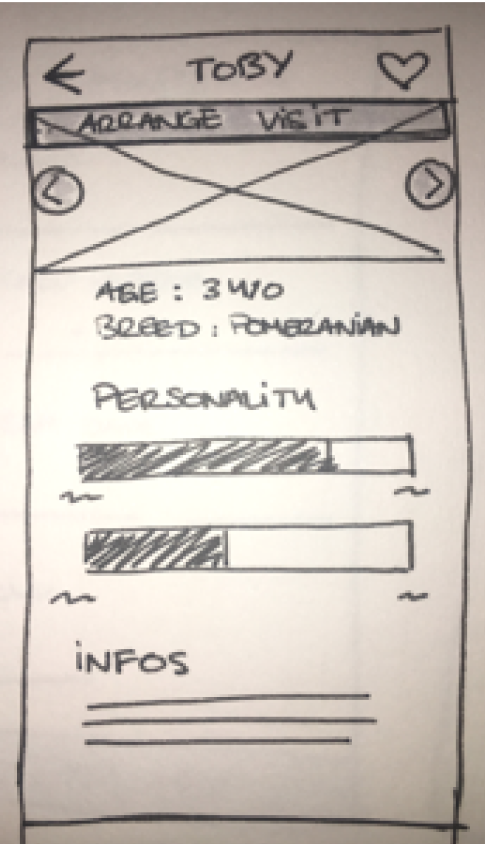 TOBY
ARRANGE VISIT
AGE : 3 Y/O
BREED : POMERANIAN
PERSONALITY
INFOS